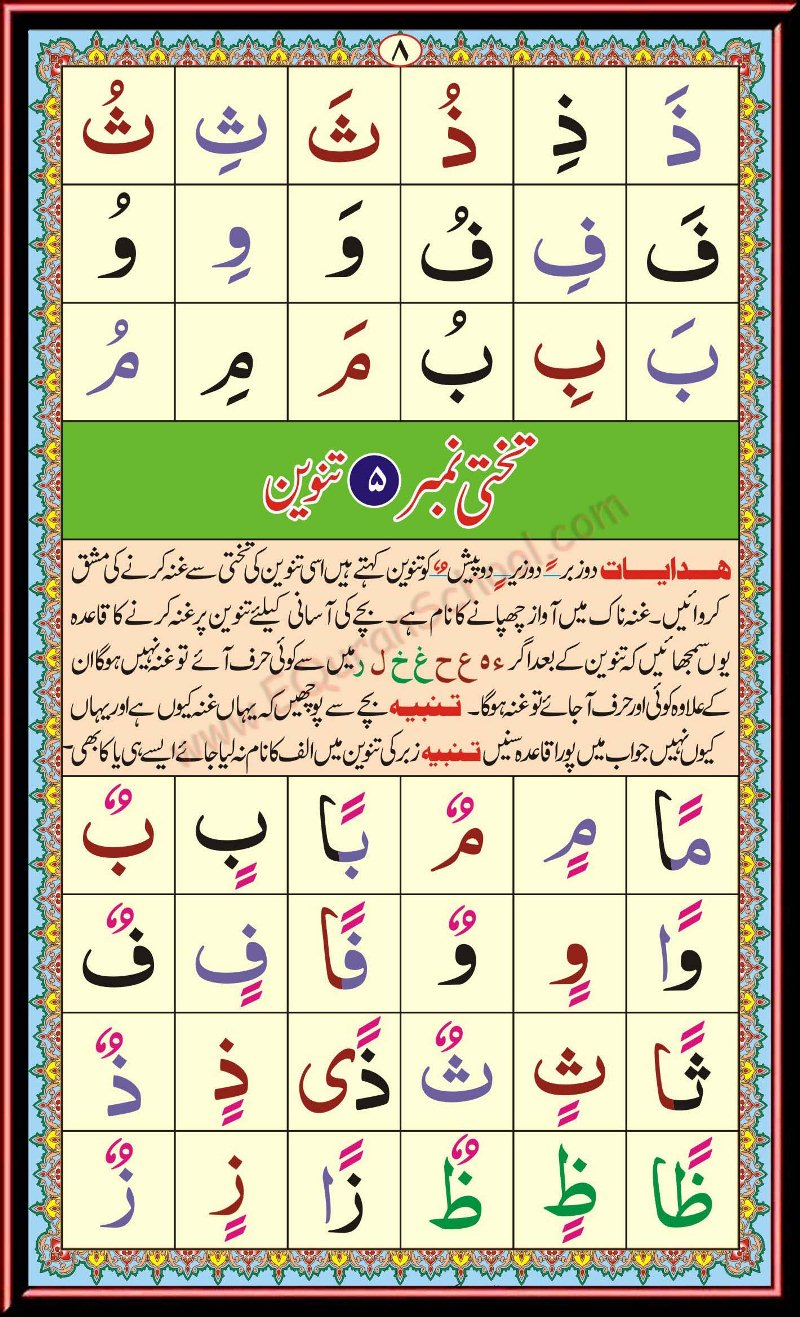 ٨
ذَ ذِ ذُ ثَ ثِ ثُ
فَ فِ فُ وَ وِ وُ
بَ بِ بُ مَ مِ مُ
تختی نمبر ۵ تنوین
ھدایات دو زبر ـً دو زیر ـٍ دو پیش ـٌ کو تنوین کہتے ہیں اسی تنوین کی تختی سے غنہ کرنے کی مشق
کروائیں۔ غنہ ناک میں آواز چھپانے کا نام ہے۔ بچے کی آسانی کیلئے تنوین پر غنہ کرنے کا قاعدہ
یوں سمجھائیں کہ تنوین کے بعد اگر ء ہ ع ح غ خ ل ر میں سے کوئی حرف آئے تو غنہ نہیں ہوگا ان
کے علاوہ کوئی اور حرف آجائے تو غنہ ہوگا۔ تنبیہ بچے سے پوچھیں کہ یہاں غنہ کیوں ہے اور یہاں
کیوں نہیں جواب میں پورا قاعدہ سنیں تنبیہ زبر کی تنوین میں الف کا نام نہ لیا جائے ایسے ہی یا کا بھی۔
مًا مٍ مٌ بًا بٍ بٌ
وًا وٍ وٌ فًا فٍ فٌ
ثًا ثٍ ثٌ ذًی ذٍ ذٌ
ظًا ظٍ ظٌ زًا زٍ زٌ
www.EQuranSchool.com